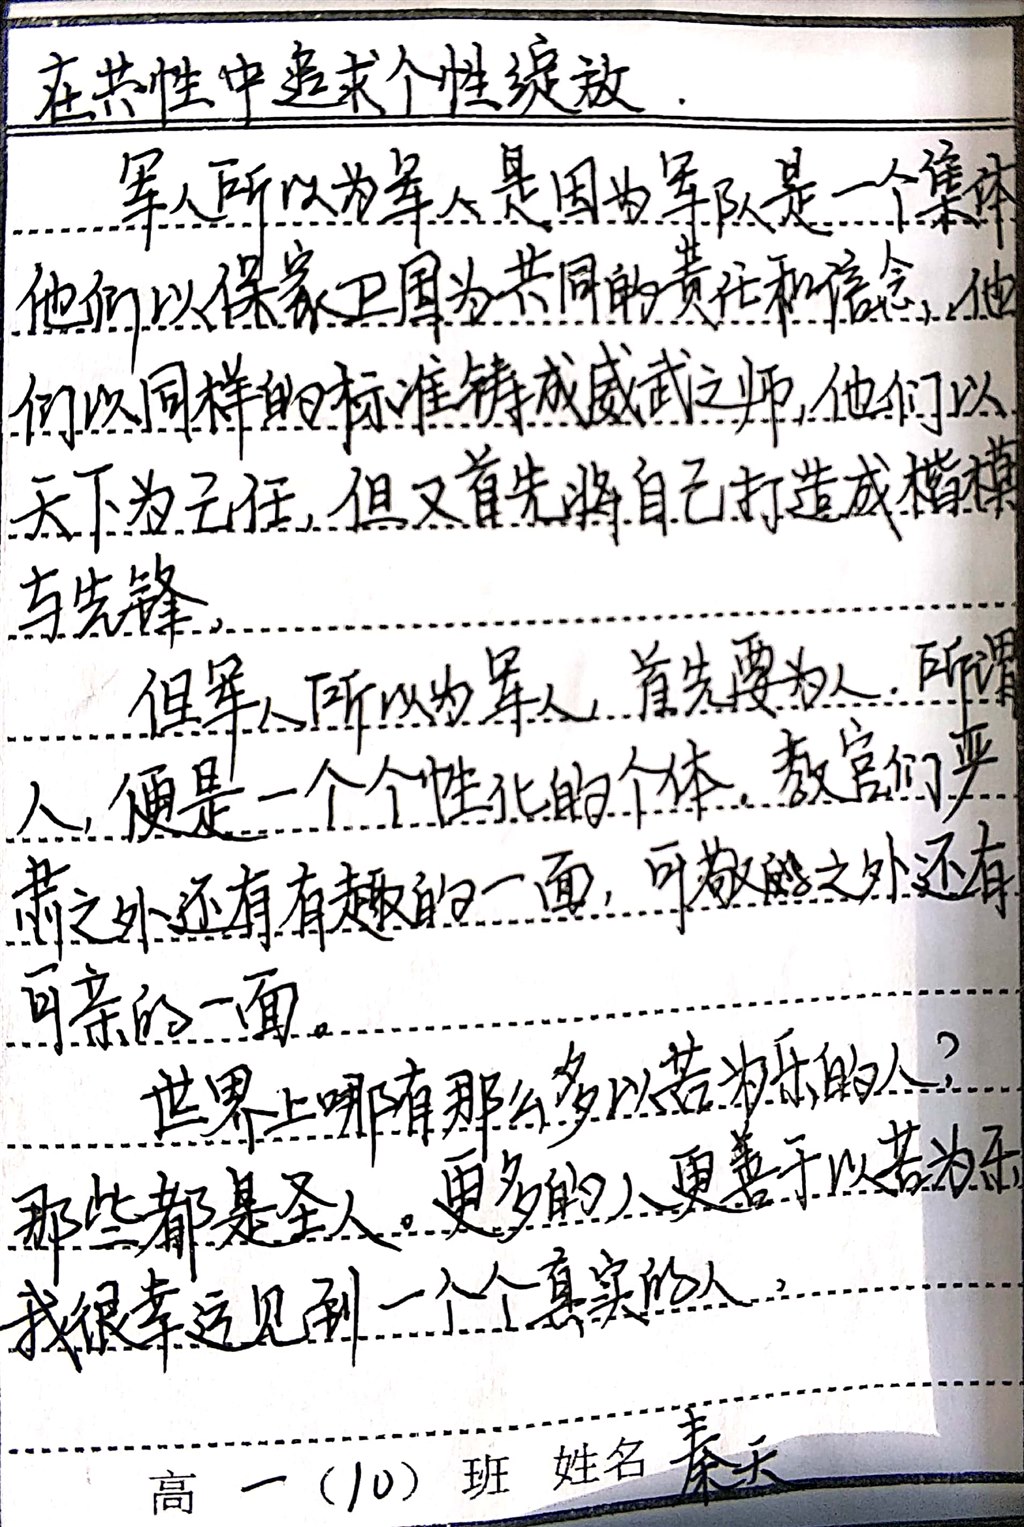 在共性中追求个性绽放.
军人所以为军人是因为军队是一个集体
他们以保家卫国为共同的责任和信念,他
们以同样的标准铸成威武之师,他们以
天下为己任,但又首先将自己打造成楷模
与先锋,
但军人所以为军人,首先要为人.所谓
人,便是一个个性化的个体.教官们严
肃之外还有有趣的一面,可敬的之外还有
可亲的一面。
世界上哪有那么多以苦为乐的人?
那些都是圣人。更多的人更善于以苦为乐
我很幸运见到一个个真实的人.
高一(10)班 姓名 秦天